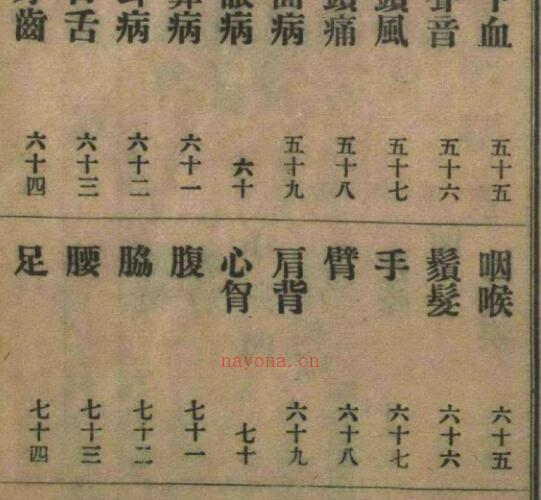 下血 五十五
聲音 五十六
頭風 五十七
頭痛 五十八
面病 五十九
眼病 六十
鼻病 六十一
耳病 六十二
口舌 六十三
牙齒 六十四
咽喉 六十五
鬚髮 六十六
手 六十七
臂 六十八
肩背 六十九
心胷 七十
腹 七十一
脇 七十二
腰 七十三
足 七十四
nayona.cn